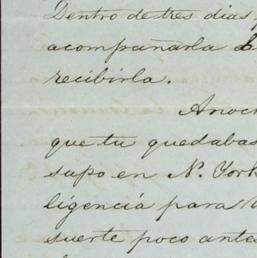 Dentro de tres dias
acompañarla
recibirla.
Anoc
que tu quedabas
supo en N. York
ligencia para
suerte poco antes